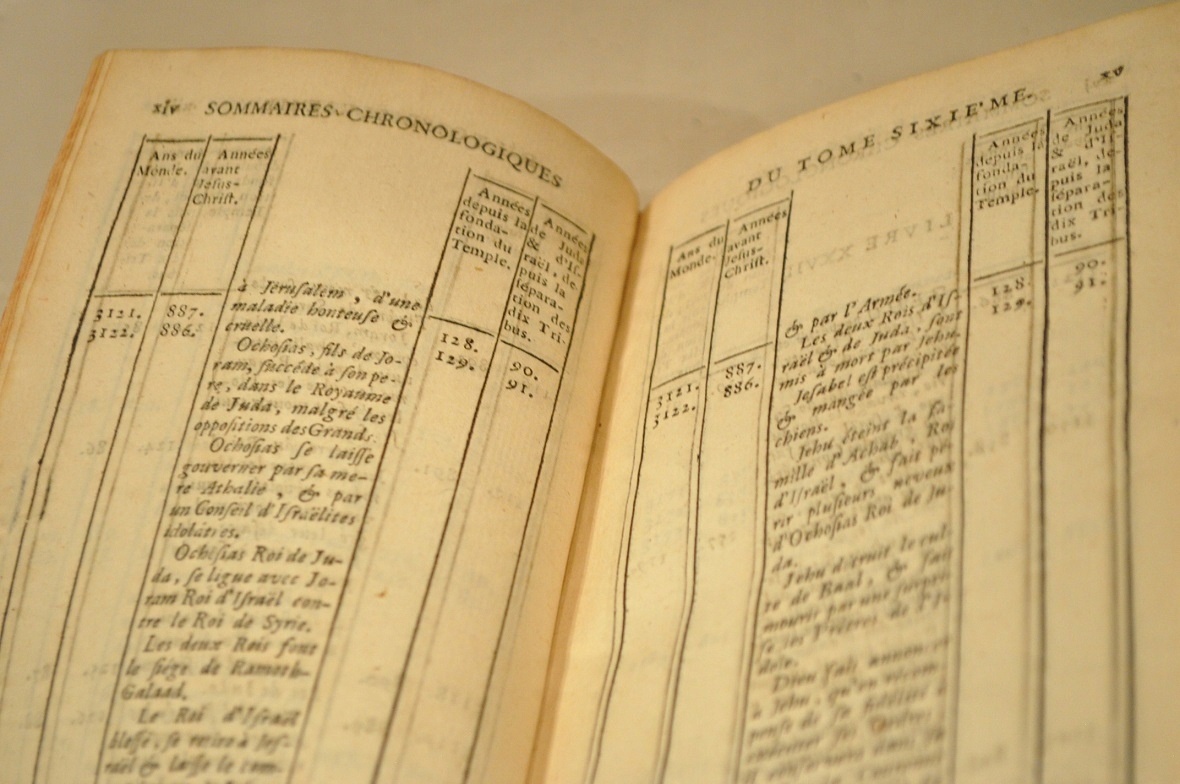 xiv SOMMAIRES CHRONOLOGIQUES
Ans du
Monde.
Années
avant
Jesus-
Christ.
Années
depuis la
fonda-
tion du
Temple.
Années
de Juda
& d'Is-
raël, de-
puis la
sépara-
tion des
dix Tri-
bus.
3121. 887.
3122. 886.
à Jérusalem, d'une
maladie honteuse &
cruelle.
Ochosias, fils de Jo-
ram, succéde à son pe-
re, dans le Royaume
de Juda, malgré les
oppositions des Grands.
Ochosias se laisse
gouverner par sa me-
re Athalie, & par
un Conseil d'Israëlites
idolâtres.
Ochosias Roi de Ju-
da, se ligue avec Jo-
ram Roi d'Israël con-
tre le Roi de Syrie.
Les deux Rois font
le siége de Ramoth-
Galaad.
Le Roi d'Israël
blessé, se retire à Jes-
raël & laisse le com-
128. 90.
129. 91.
DU TOME SIXIE'ME. xv
Ans du
Monde.
Années
avant
Jesus-
Christ.
Années
depuis la
fonda-
tion du
Temple.
Années
de Juda
& d'Is-
raël, de-
puis la
sépara-
tion des
dix Tri-
bus.
3121. 887.
3122. 886.
& par l'Armée.
Les deux Rois d'Is-
raël & de Juda, sont
mis à mort par Jehu.
Jesabel est précipitée
& mangée par les
chiens.
Jehu éteint la fa-
mille d'Achab, Roi
d'Israël, & fait pé-
rir plusieurs neveux
d'Ochosias Roi de Ju-
da.
Jehu détruit le cul-
te de Baal, & fait
mourir par une
les Prêtres de l'I-
dole.
Dieu fait
à Jehu, qu'en
de sa fidélité à
128. 90.
129. 91.